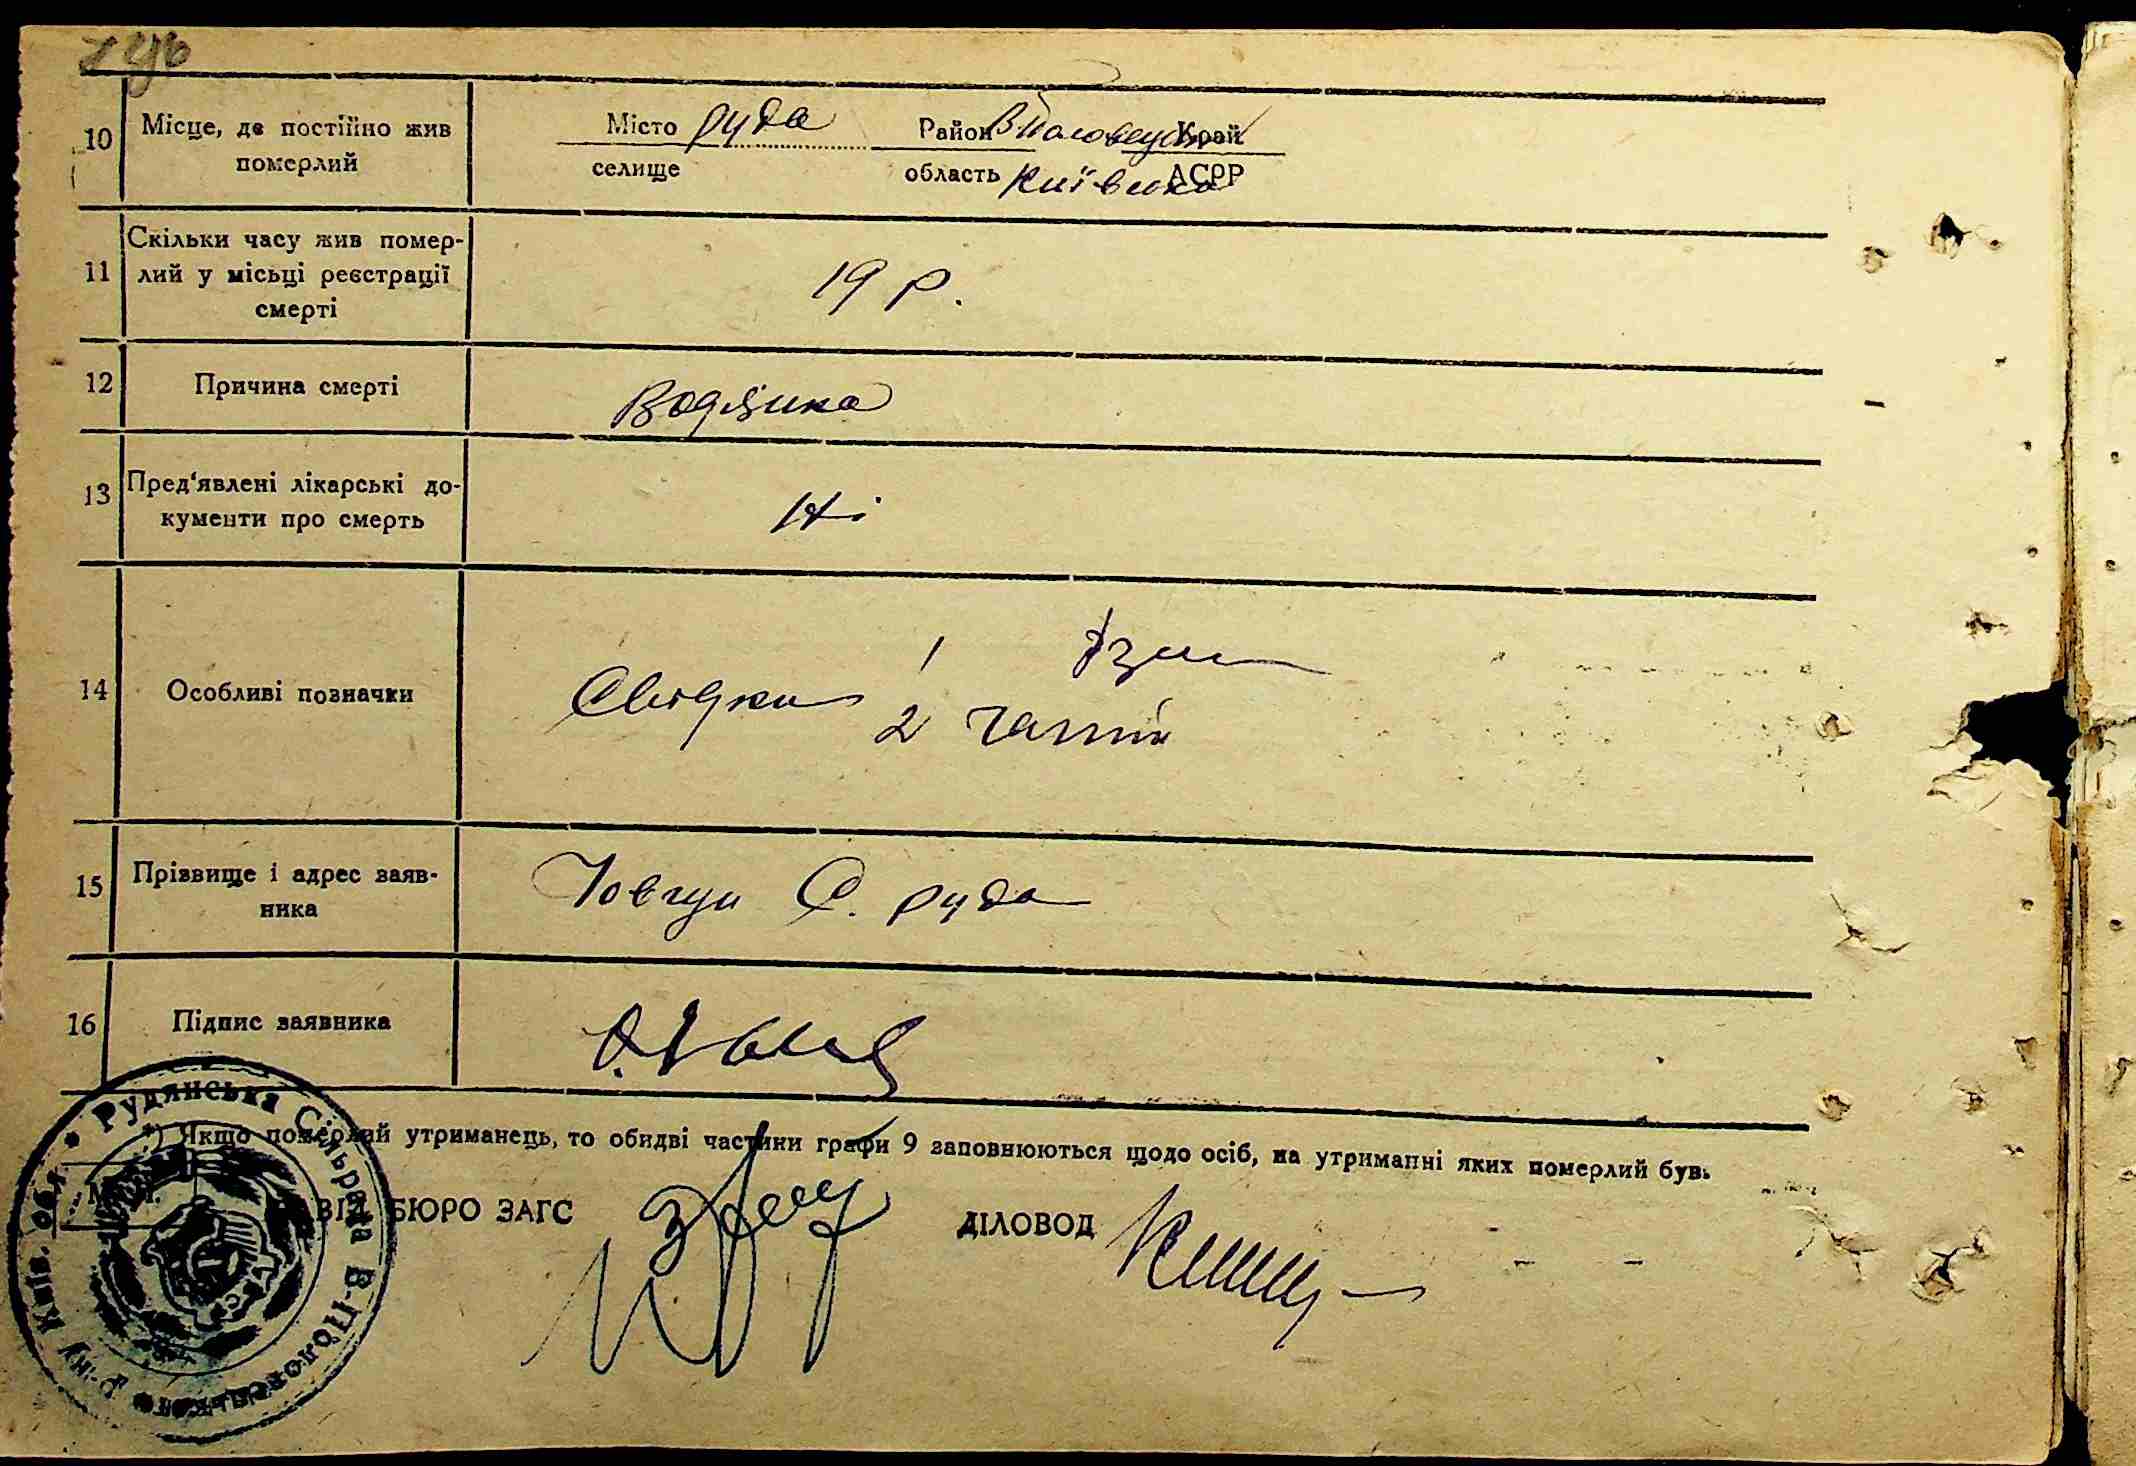 10 Місце, де постійно жив померлий
Місто Руда Район В Половецьк Край
селище область Київська АСРР
11 Скільки часу жив помер-
лий у місьці реєстрації
смерті
19 р.
12 Причина смерті Водянка
13 Пред'явлені лікарські до-
кументи про смерть
Ні
14 Особливі позначки
Свідки 1
2
15 Прізвище і адрес заяв-
ника
Товгун С. Руда
16 Підпис заявника
*) Якщо померлий утриманець, то обидві частини графи 9 заповнюються щодо осіб, на утриманні яких померлий був.
ЗАВ БЮРО ЗАГС
ДІЛОВОД
Рудянська Сільрада В-Половецького р-ну Київ. обл